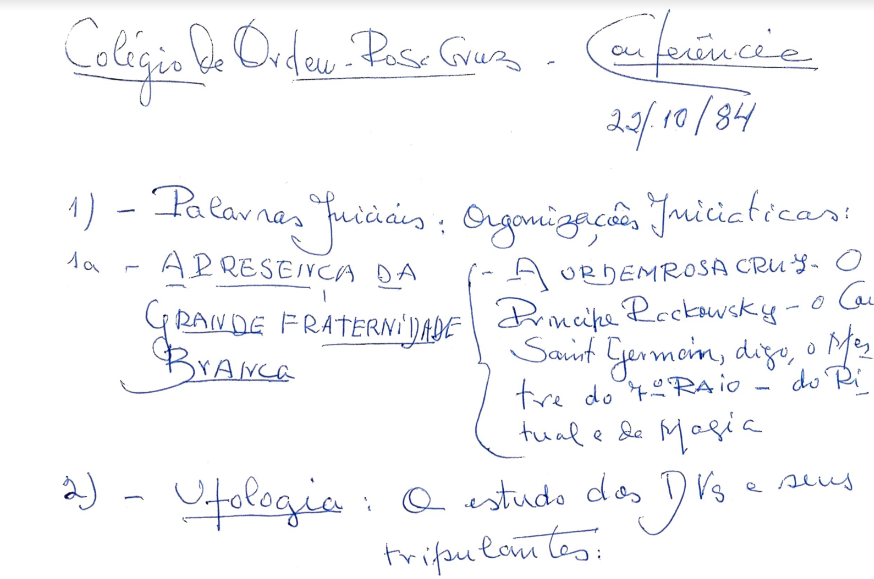 Colégio da Ordem Rosa Cruz - Conferência
22/10/84
1) - Palavras Iniciais: Organizações Iniciáticas:
1a - A PRESENÇA DA
GRANDE FRATERNIDADE
BRANCA
- A ORDEM ROSA CRUZ - O
Príncipe Rackowsky - o
Saint Germain, digo, o Mes
tre do 7º RAIO - do Ri
tual e da Magia
2) - Ufologia: O estudo dos DVs e seus
tripulantes: